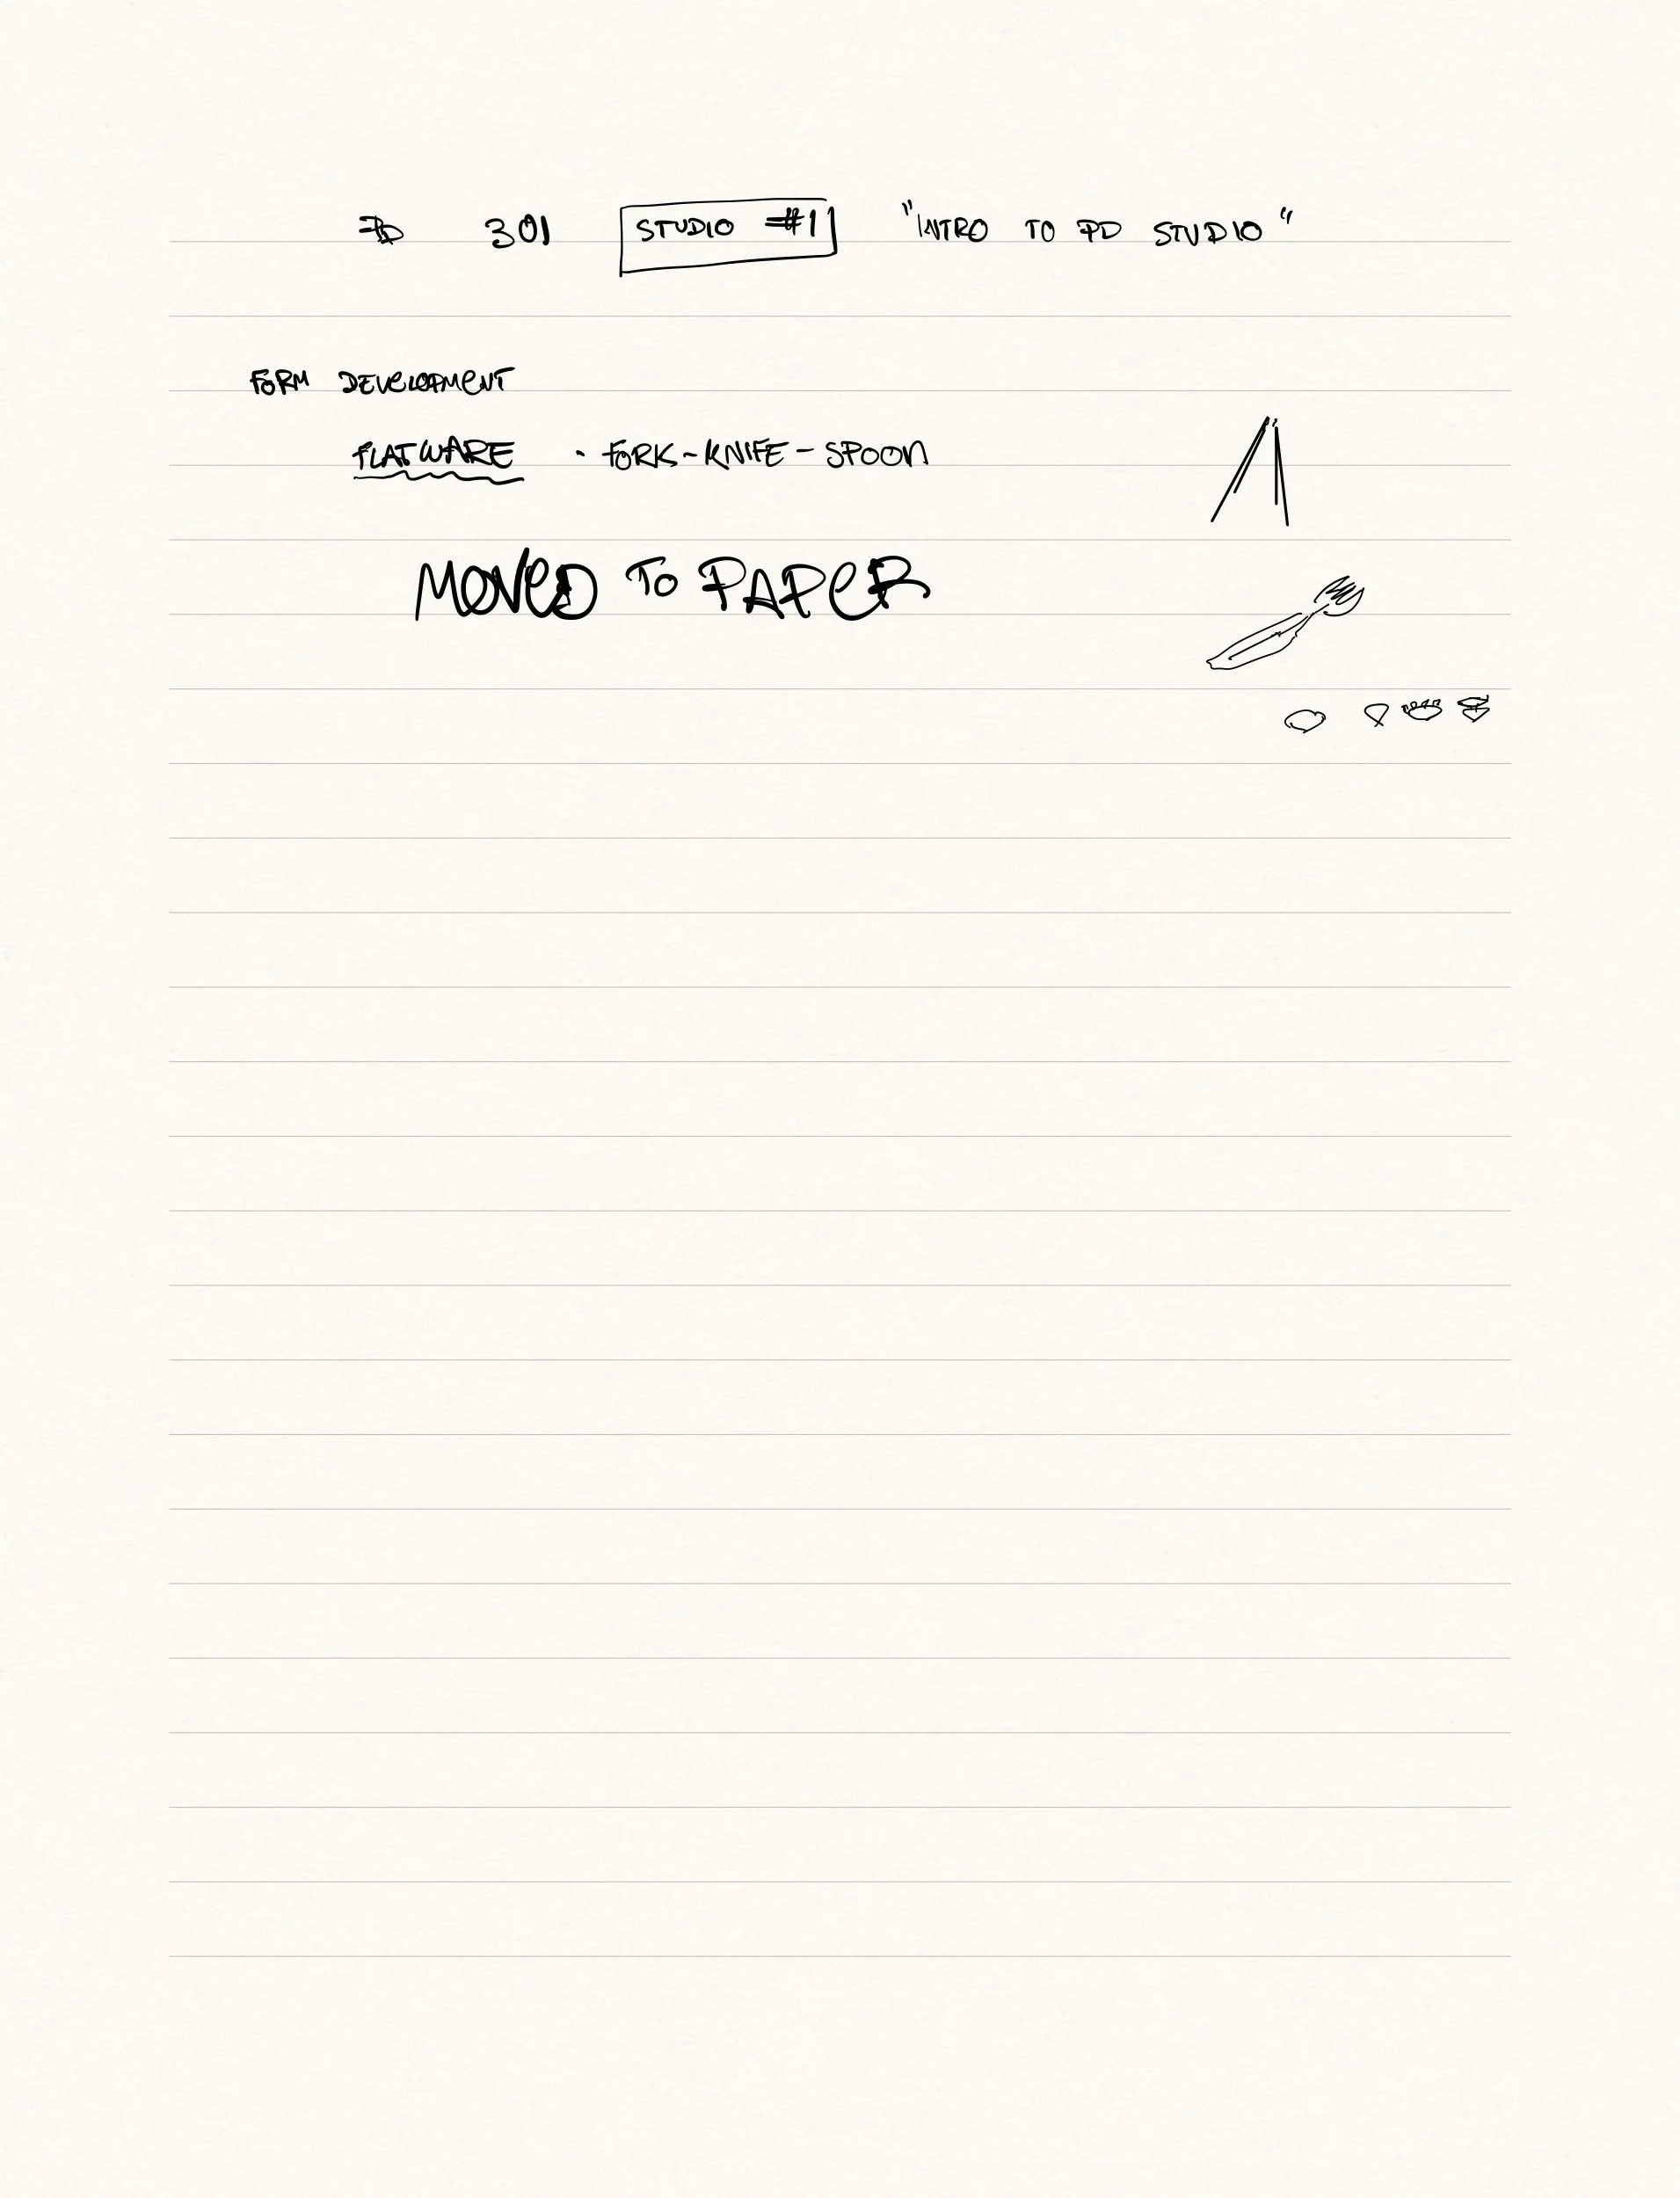 PD 301 STUDIO #1 "INTRO TO PD STUDIO"
FORM DEVELOPMENT
FLATWARE · FORK - KNIFE - SPOON
MOVED TO PAPER